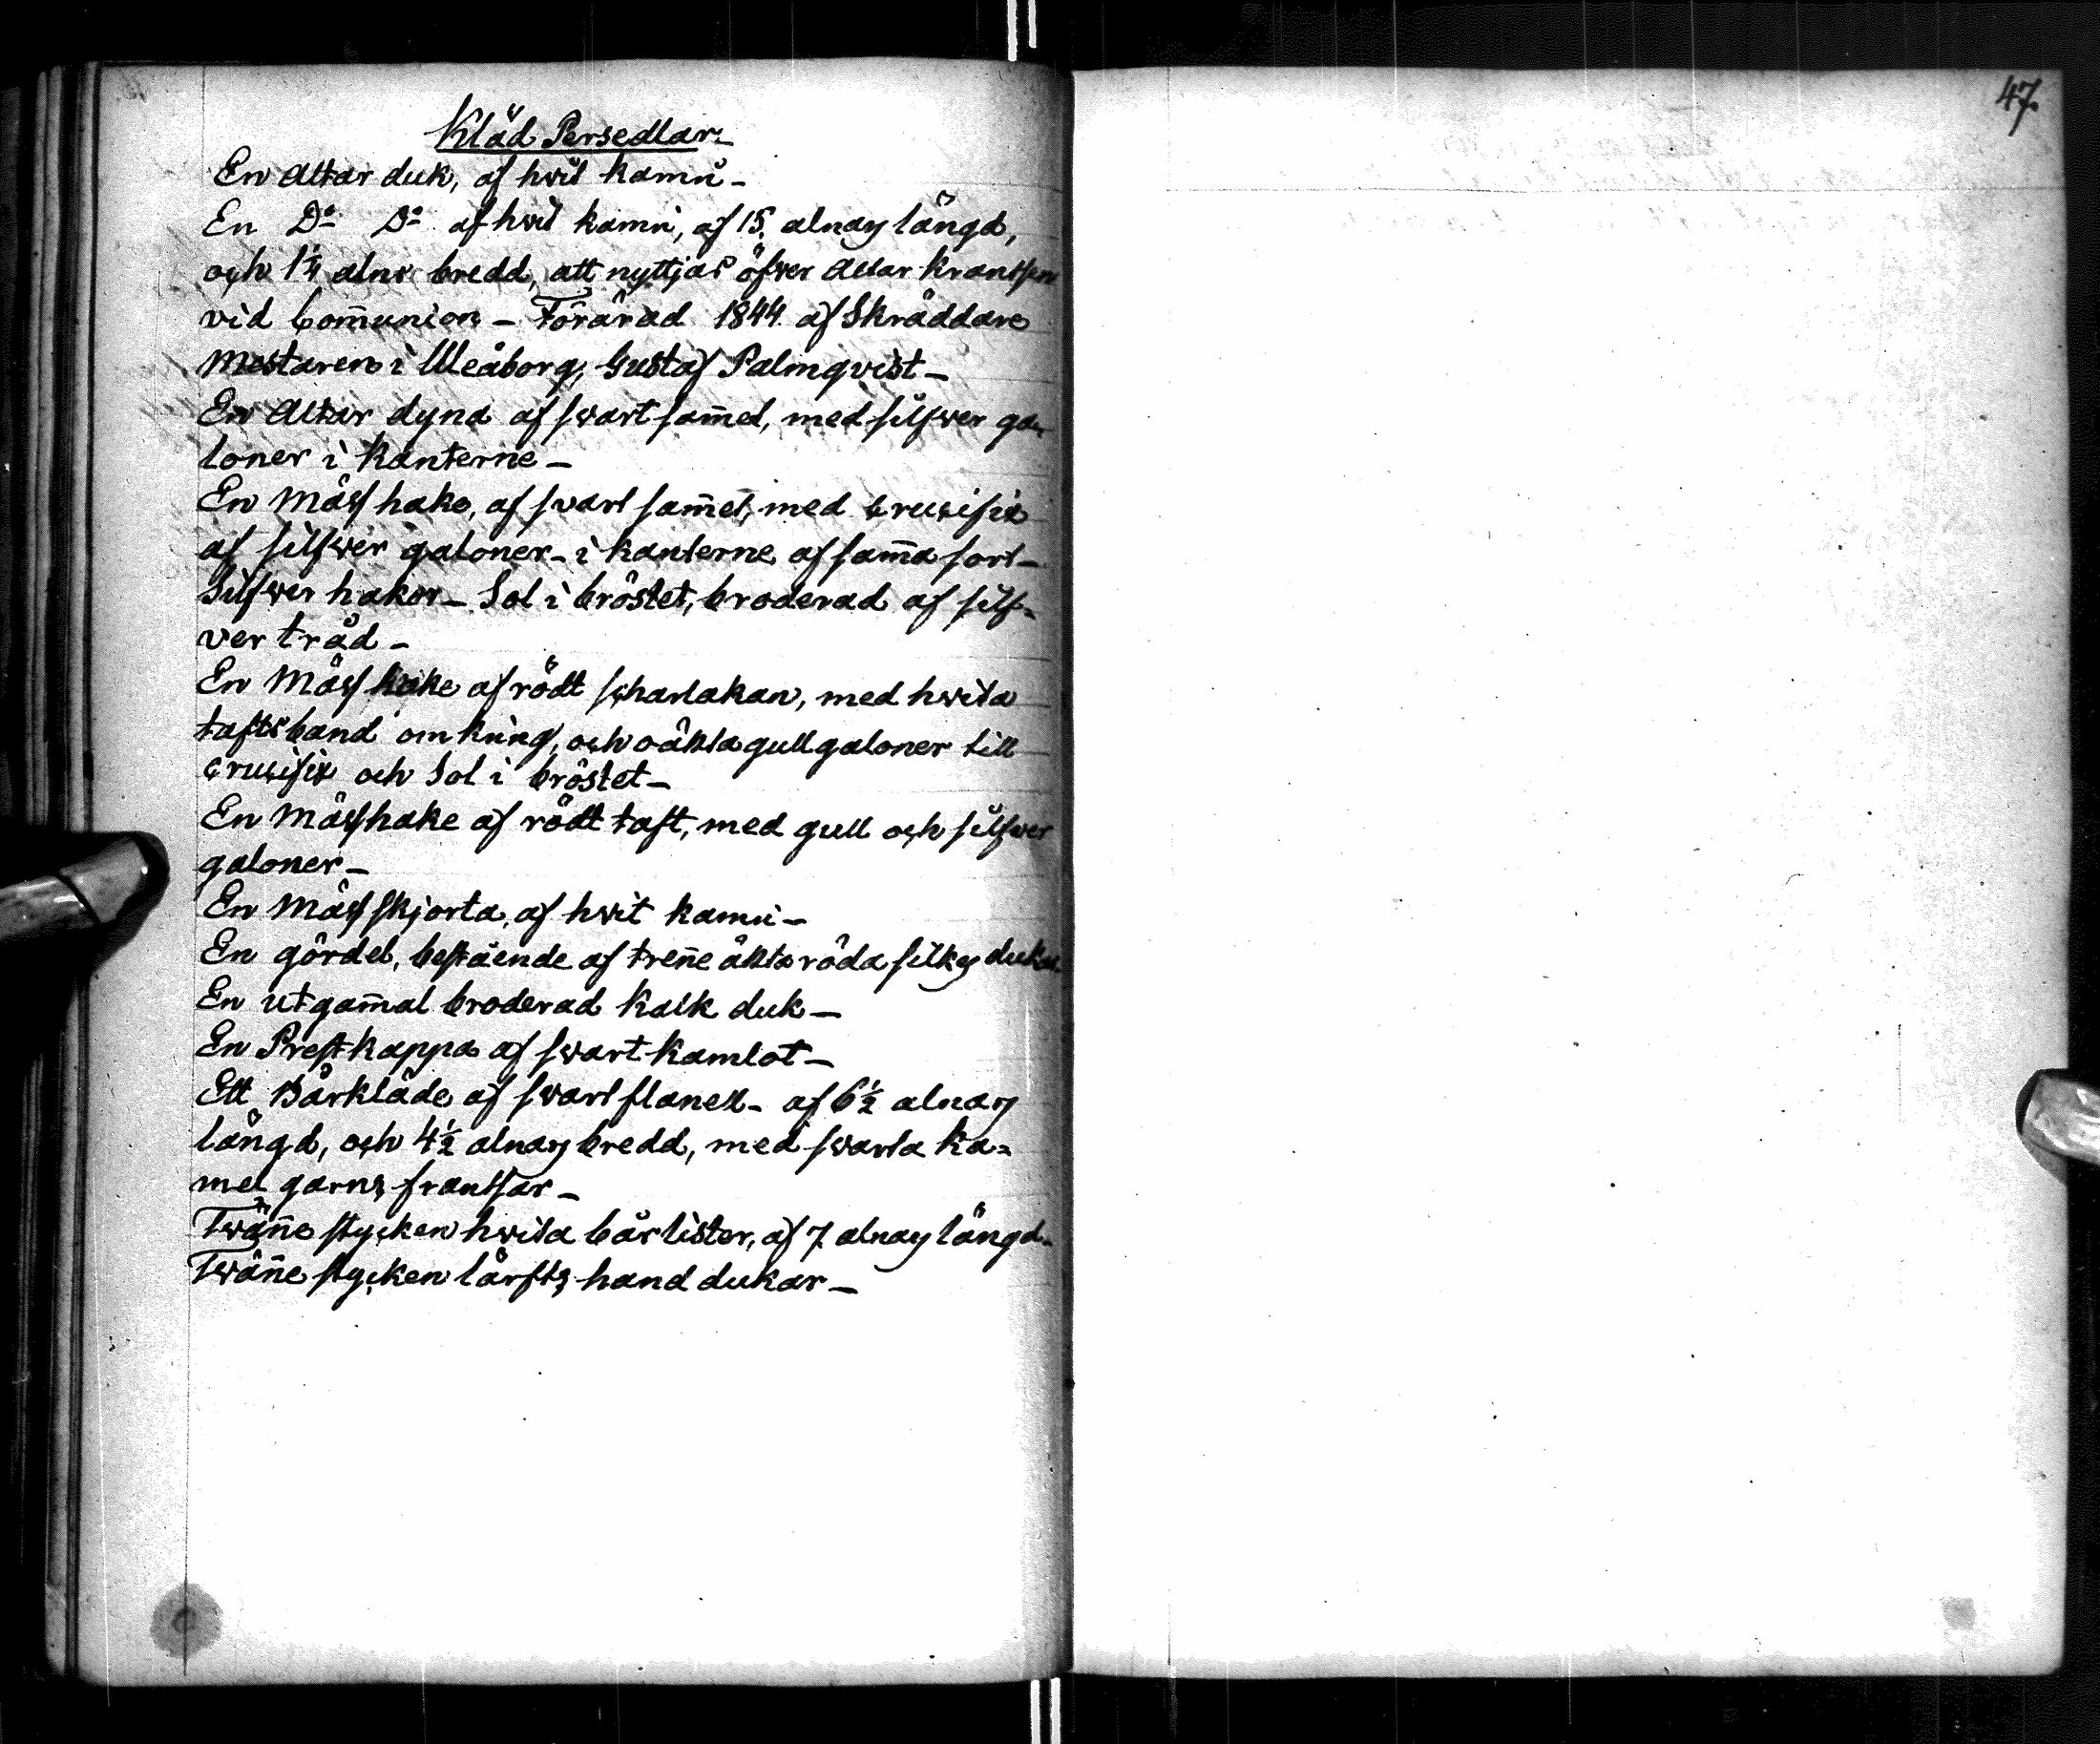 47.
Kläd Persedlar.
En Altar duk, af hvit kamri–
En Do Do af hvit kamri, af 15. alnars längd,
och 1¼ alns bredd, att nyttjas öfver Altar krantsen
vid Com̄union – Förärad 1844. af Skräddare
Mästaren i Uleåborg, Gustaf Palmqvist –
En Altar dyna af swart sam̄et, med silfwer ga-
loner i kanterne –
En Mässhake, af svart sam̄et, med Crucifix
af silfwer galoner – i kanterne af sam̄a sort –
Silfwer hakor – Sol i bröstet, broderad af silf=
ver tråd –
En Mässhake af rödt scharlakan, med hwita
taftsband omkring, och oäkta gull galoner till
crucifix och Sol i bröstet –
En Mässhake af rödt taft, med gull och silfwer
galoner –
En Mässskjorta, af hwit kamri –
En gördel, bestående af tren̄e äkta röda silkes dukar
En utgam̄al broderad Kalk duk –
En Prestkappa af swart Kamlot –
Ett Bårkläde af swart flanell – af 6½ alnars
längd, och 4½ alnars bredd, med swarta ka=
mel garns frantsar –
Twän̄e stycken hwita bår lister, af 7. alnars längd –
Twän̄e stycken lärfts hand dukar –